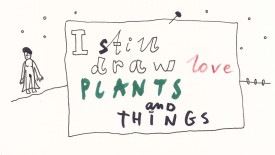 I still
draw love
PLANTS
and
THINGS